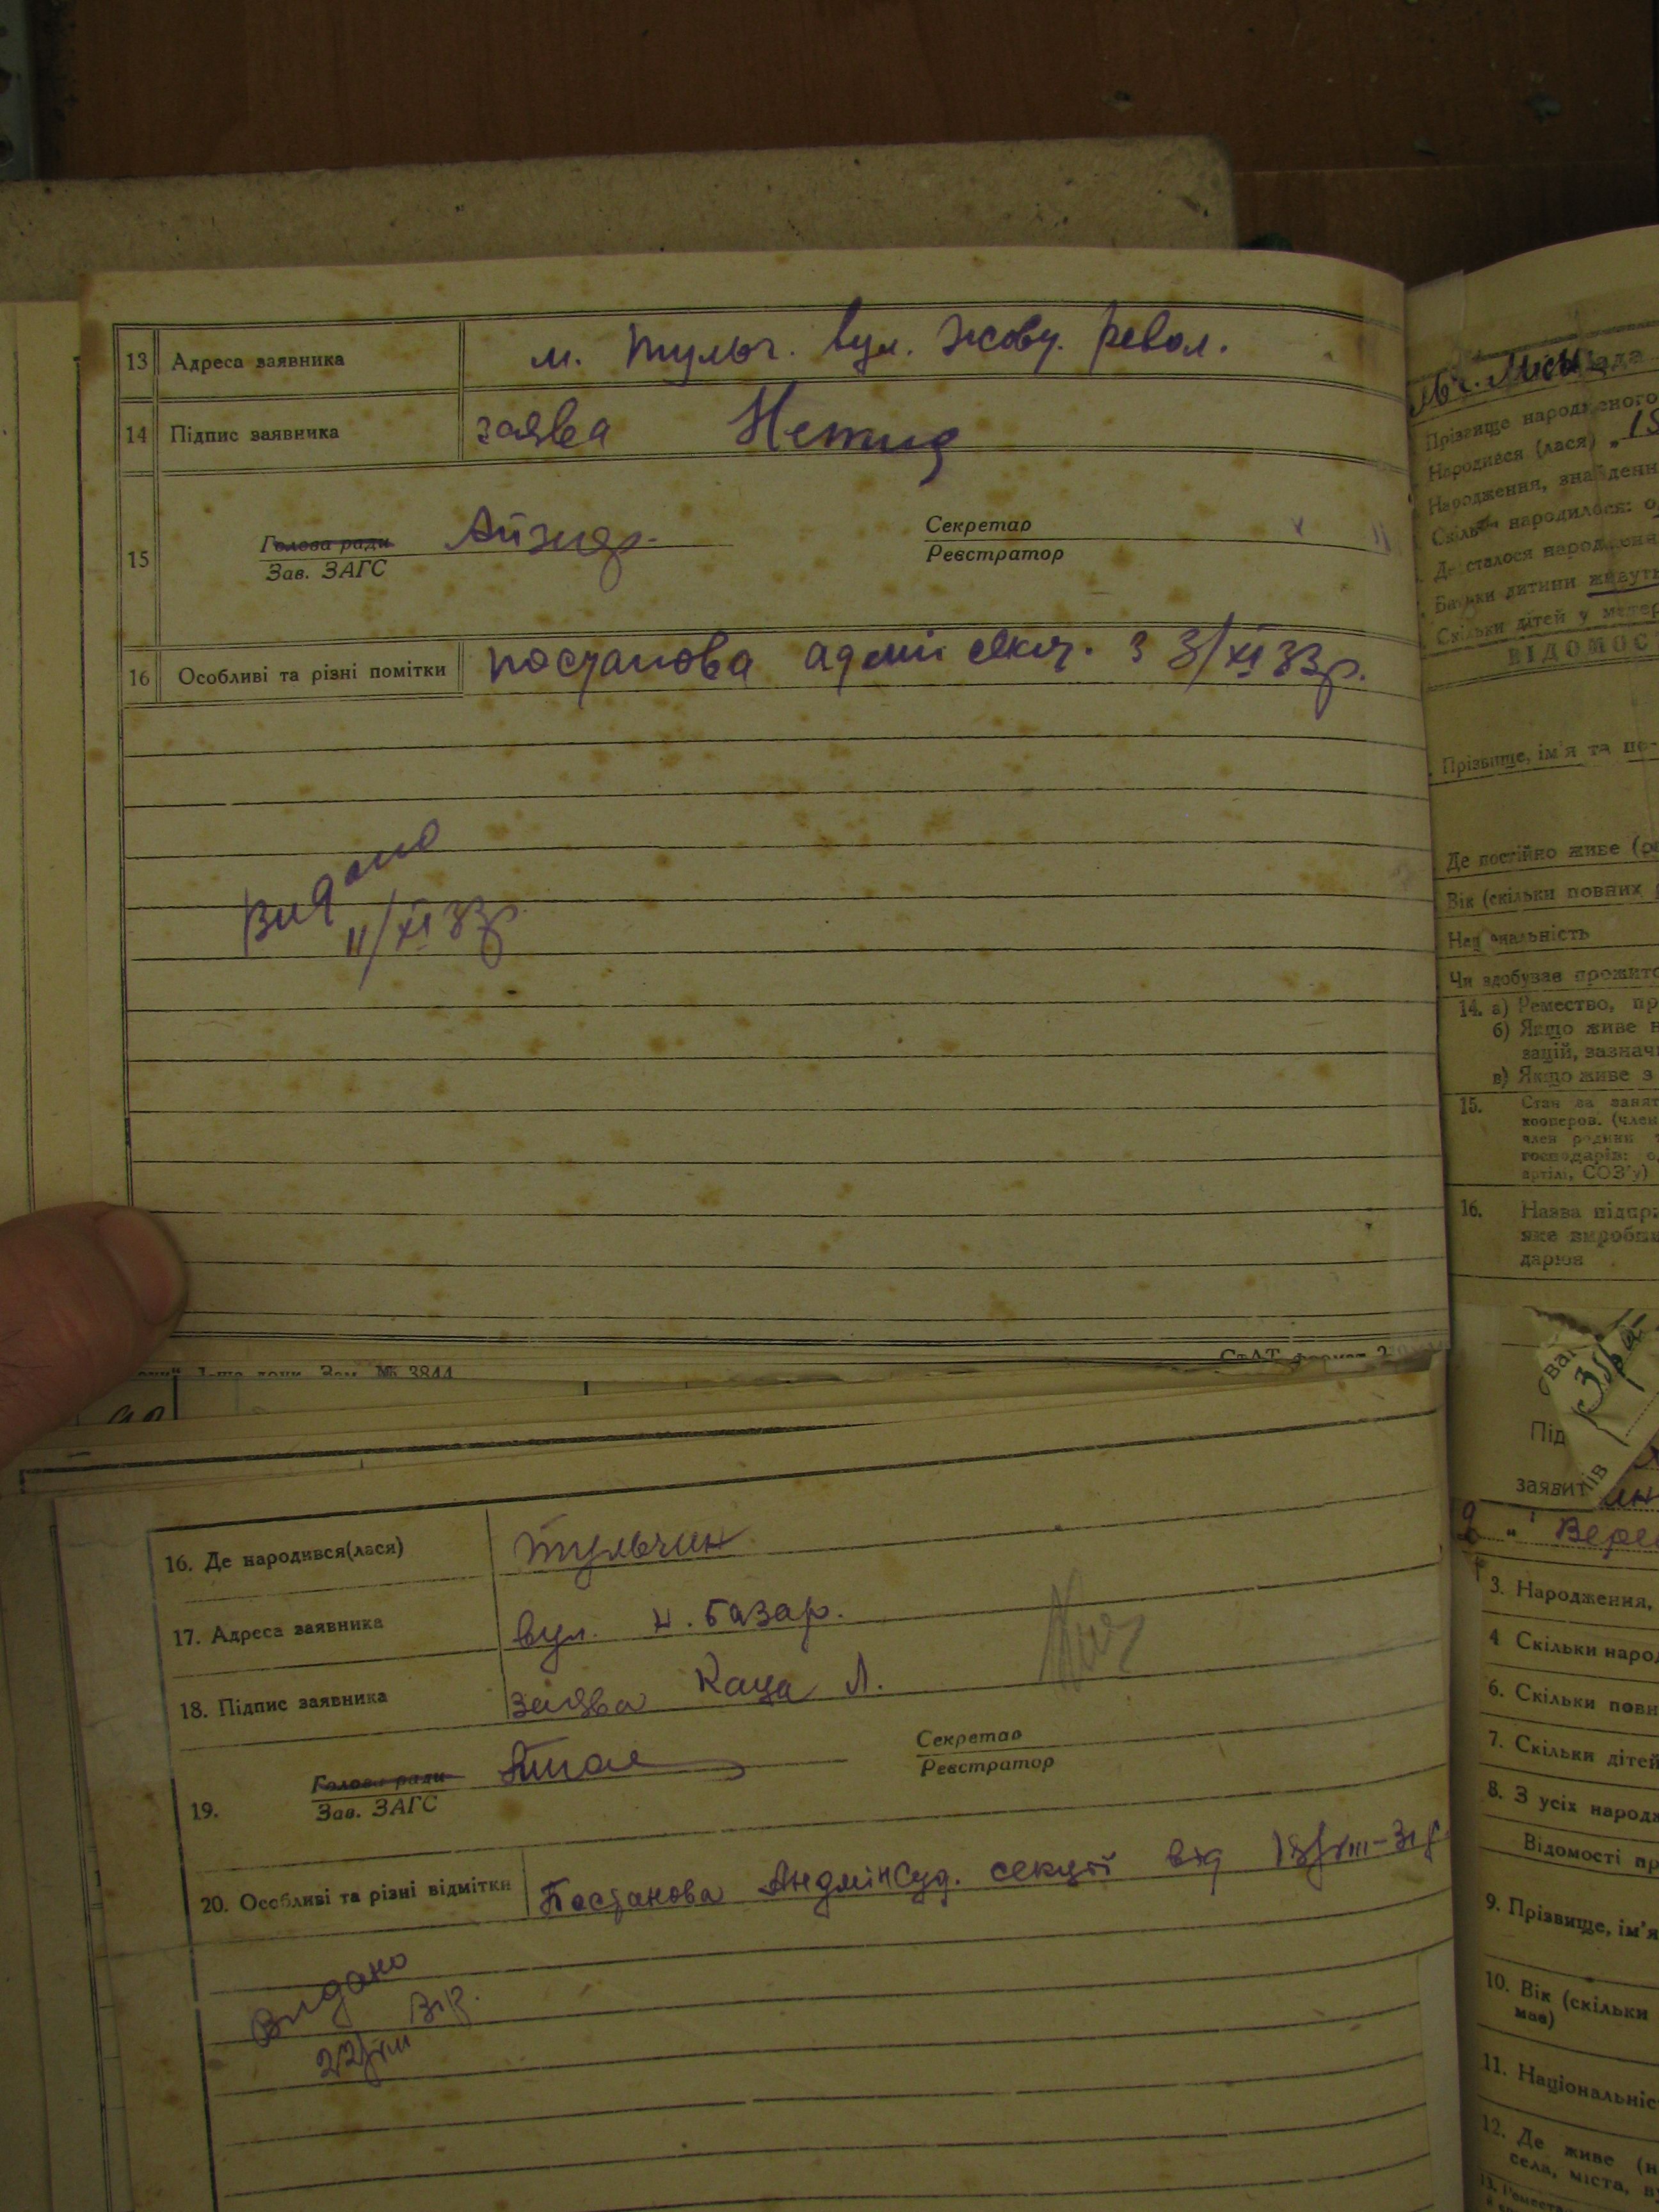 13 Адреса заявника м. Тульч. вул. Жовт. револ.
14 Підпис заявника заява
15 Голова ради
Зав. ЗАГС
Секретар
Реєстратор
16 Особливі та різні помітки постанова адмін секц. з 3/XI 33р.
Видано
11/XI 33р.
1-ша друк. Зам. № 3844
16. Де народився(лася) Тульчин
17. Адреса заявника вул. Н. базар.
18. Підпис заявника заява Каца Л.
19. Голова ради
Зав. ЗАГС
Секретар
Реєстратор
20. Особливі та різні відмітки Постанова секції від 18/VIII-31р
Видано
22/VIII 31р.
Прізвище народженого
Народився (лася) „
Народження, знайденн
Скільки народилося:
Де сталося народження
Батьки дитини живуть
Скільки дітей у матер
ВІДОМОС
Прізвище, ім'я та по-
Де постійно живе
Вік (скільки повних
Національність
Чи здобував прожито
14. а) Ремество, пр
б) Якщо живе н
зацій, зазнач
в) Якщо живе з
15. Стан за занят
кооперов. (член
член родини
господарів:
артілі, СОЗ'у)
16. Назва підпр
яке виробни
дарюв
Під
заявит
Вере
3. Народження,
4 Скільки народ
6. Скільки повн
7. Скільки дітей
8. З усіх народж
Відомості пр
9. Прізвище, ім'я
10. Вік (скільки
має)
11. Національніс
12. Де живе (н
села, міста, в